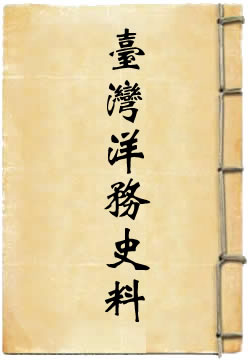 臺灣洋務史料